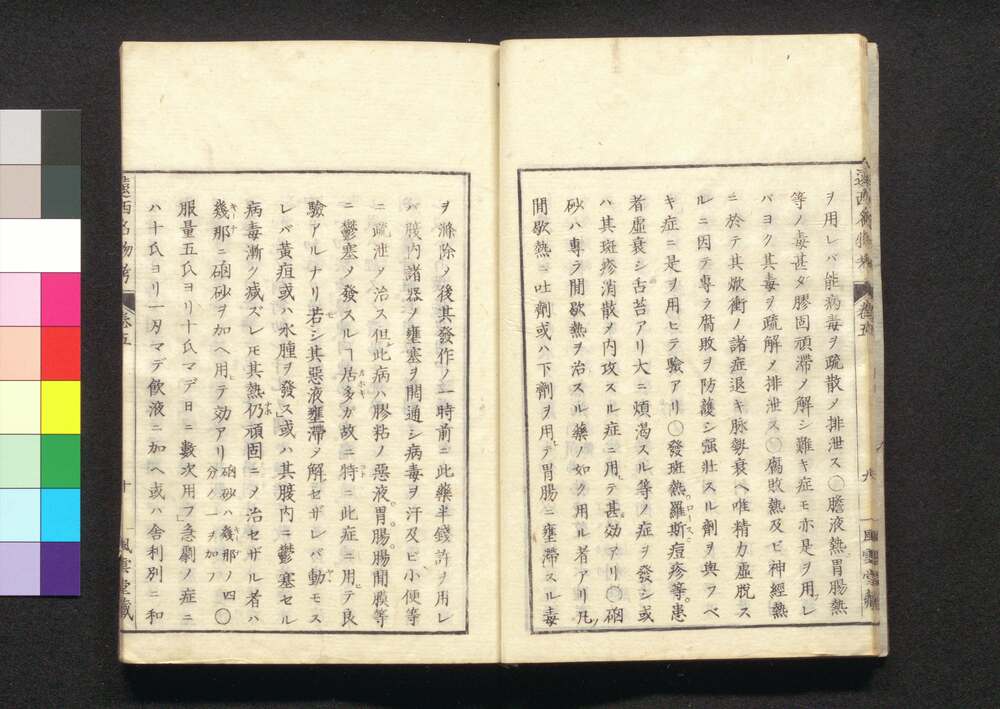 ヲ用レバ能病毒ヲ疏散シ排泄ス○膽液熱胃腸熱
等ノ毒甚ダ膠固頑滯シ解シ難キ症モ亦是ヲ用レ
バヨク其毒ヲ疏解シ排泄ス○腐敗熱及ビ神經熱
ニ於テ其焮衝ノ諸症退キ脉勢衰ヘ唯精力虛脱ス
ルニ因テ專ラ腐敗ヲ防護シ强壯スル劑ヲ與フベ
キ症ニ是ヲ用ヒテ驗アリ○發斑熱羅斯痘疹等患
者虛衰シ舌苔アリ大ニ煩渴スル等ノ症ヲ發シ或
ハ其斑疹消散シ内攻スル症ニ用テ甚効アリ○硇
砂ハ專ラ間歇熱ヲ治スル藥ノ如ク用ル者アリ凡
間歇熱ニ吐劑或ハ下劑ヲ用テ胃腸ニ壅滯スル毒
遠西名物考 卷五 九 風雲堂藏
ヲ滌除シ後其發作ノ一時前ニ此藥半錢許ヲ用レ
バ腹内諸器ノ壅塞ヲ開通シ病毒ヲ汗及ビ小便等
ニ疏泄シ治ス但此病ハ膠粘ノ惡液胃腸腸間膜等
ニ鬱塞シ發スルヿ居多ナルガ故ニ特ニ此症ニ用テ良
驗アルナリ若シ其惡液壅滯シ解セザレバ動モス
レバ黃疸或ハ水腫ヲ發ス」或ハ其腹内ニ鬱塞セル
病毒漸ク減ズレモ其熱仍頑固ニシ治セザル者ハ
幾那ニ硇砂ヲ加ヘ用テ効アリ硇砂ハ幾那ノ四分ノ一ヲ加フ○
服量五氏ヨリ十氏マデ日ニ數次用フ」急劇ノ症ニ
ハ十氏ヨリ一刃マデ飲液ニ加ヘ或ハ舍利別ニ和
遠西名物考 卷五 十 風雲堂藏